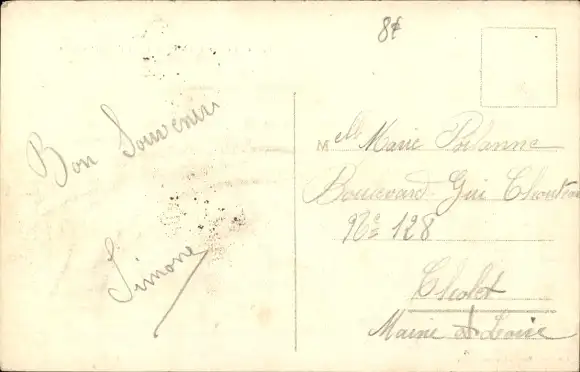 8f
Bon Souvenir
Simone
Mlle Marie Poilanne
Boulevard Gui Chouteau
No 128
Cholet
Maine & Loire